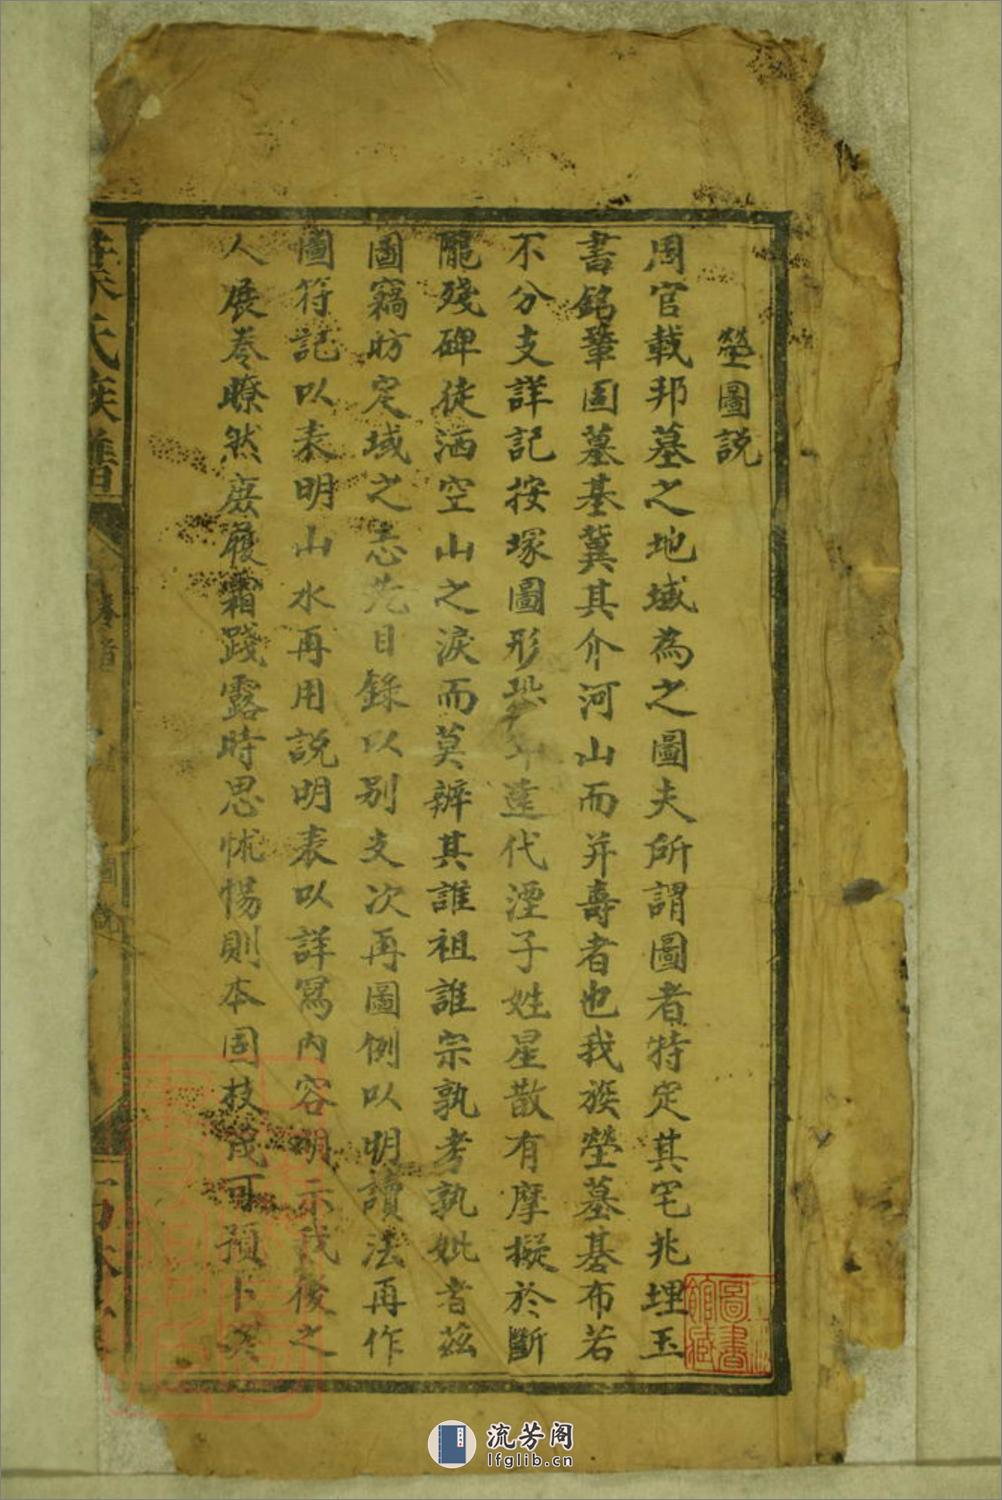 塋圖説
周官載邦墓之地域為之圖夫所謂圖者特定其宅兆埋玉
書銘鞏固墓基冀其介河山而并壽者也我族塋墓碁布若
不分支詳記按塚圖形恐年遠代湮子姓星散有摩擬於斷
隴殘碑徒洒空山之淚而莫辨其誰祖誰宗孰考孰妣者茲
圖竊昉定域之志先目錄以别支次再圖例以明讀法再作
圖符記以表明山水再用説明表以詳寫内容明示我後之
人展卷瞭然庶履霜踐露時思怵惕則本固枝茂可預卜矣
氏族譜
卷首
圖說
圖書
館藏
流芳阁
lfglib.cn